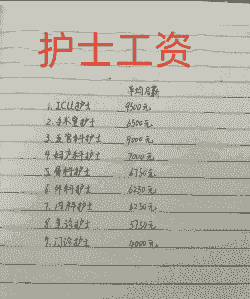 护士工资
平均月薪
1. ICU护士 9500元
2. 手术室护士 8500元
3. 五官科护士 8000元
4. 妇产科护士 7000元
5. 骨科护士 6750元
6. 外科护士 6250元
7. 内科护士 6250元
8. 急诊护士 5750元
9. 门诊护士 4000元